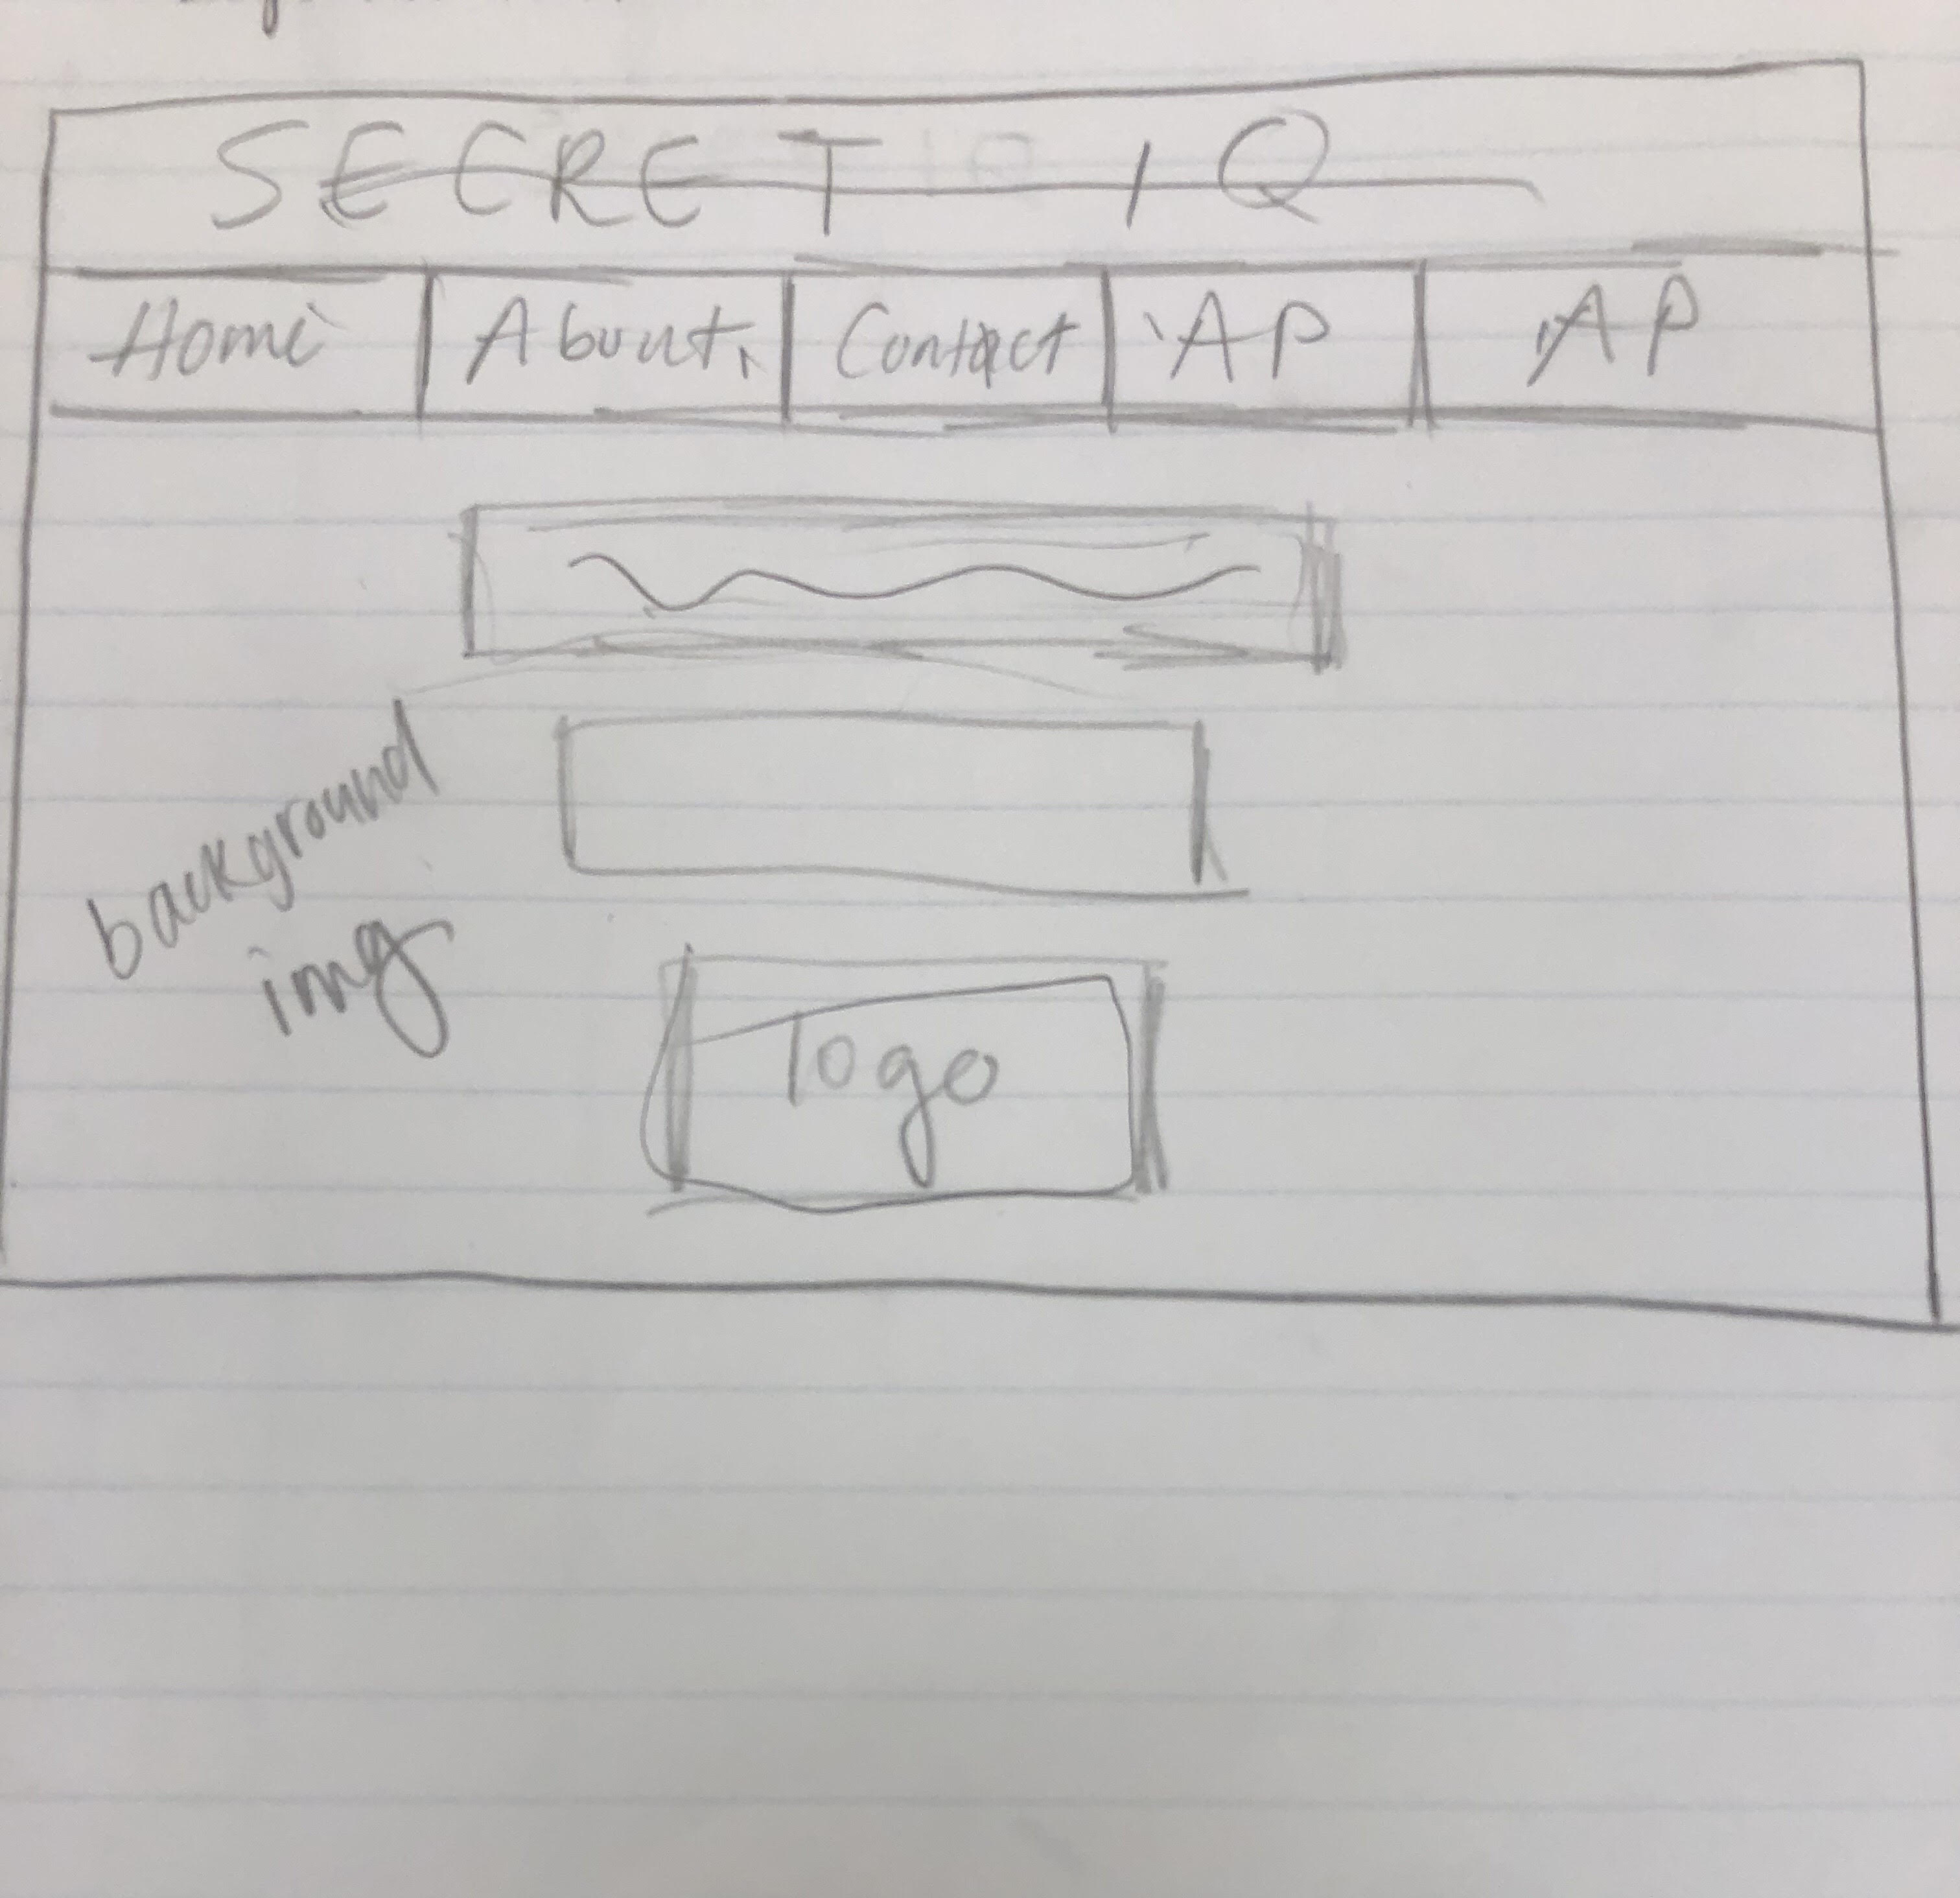 SECRET IQ
Home About Contact AP AP
background
img
logo